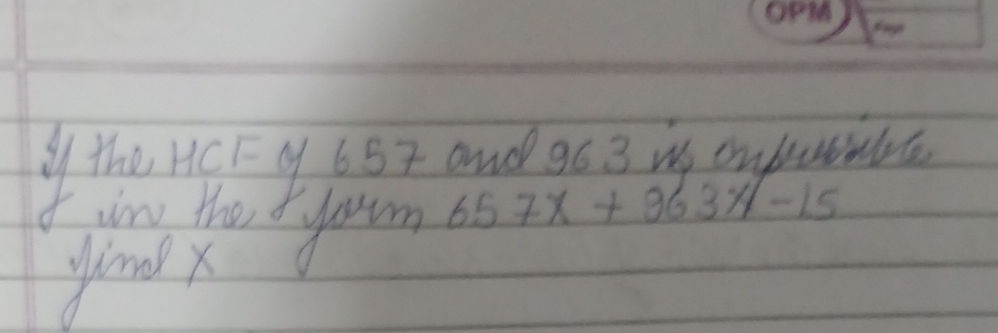 OPM
If the HCF of 657 and 963 is expressible
in the form 657x + 963x - 15
find x